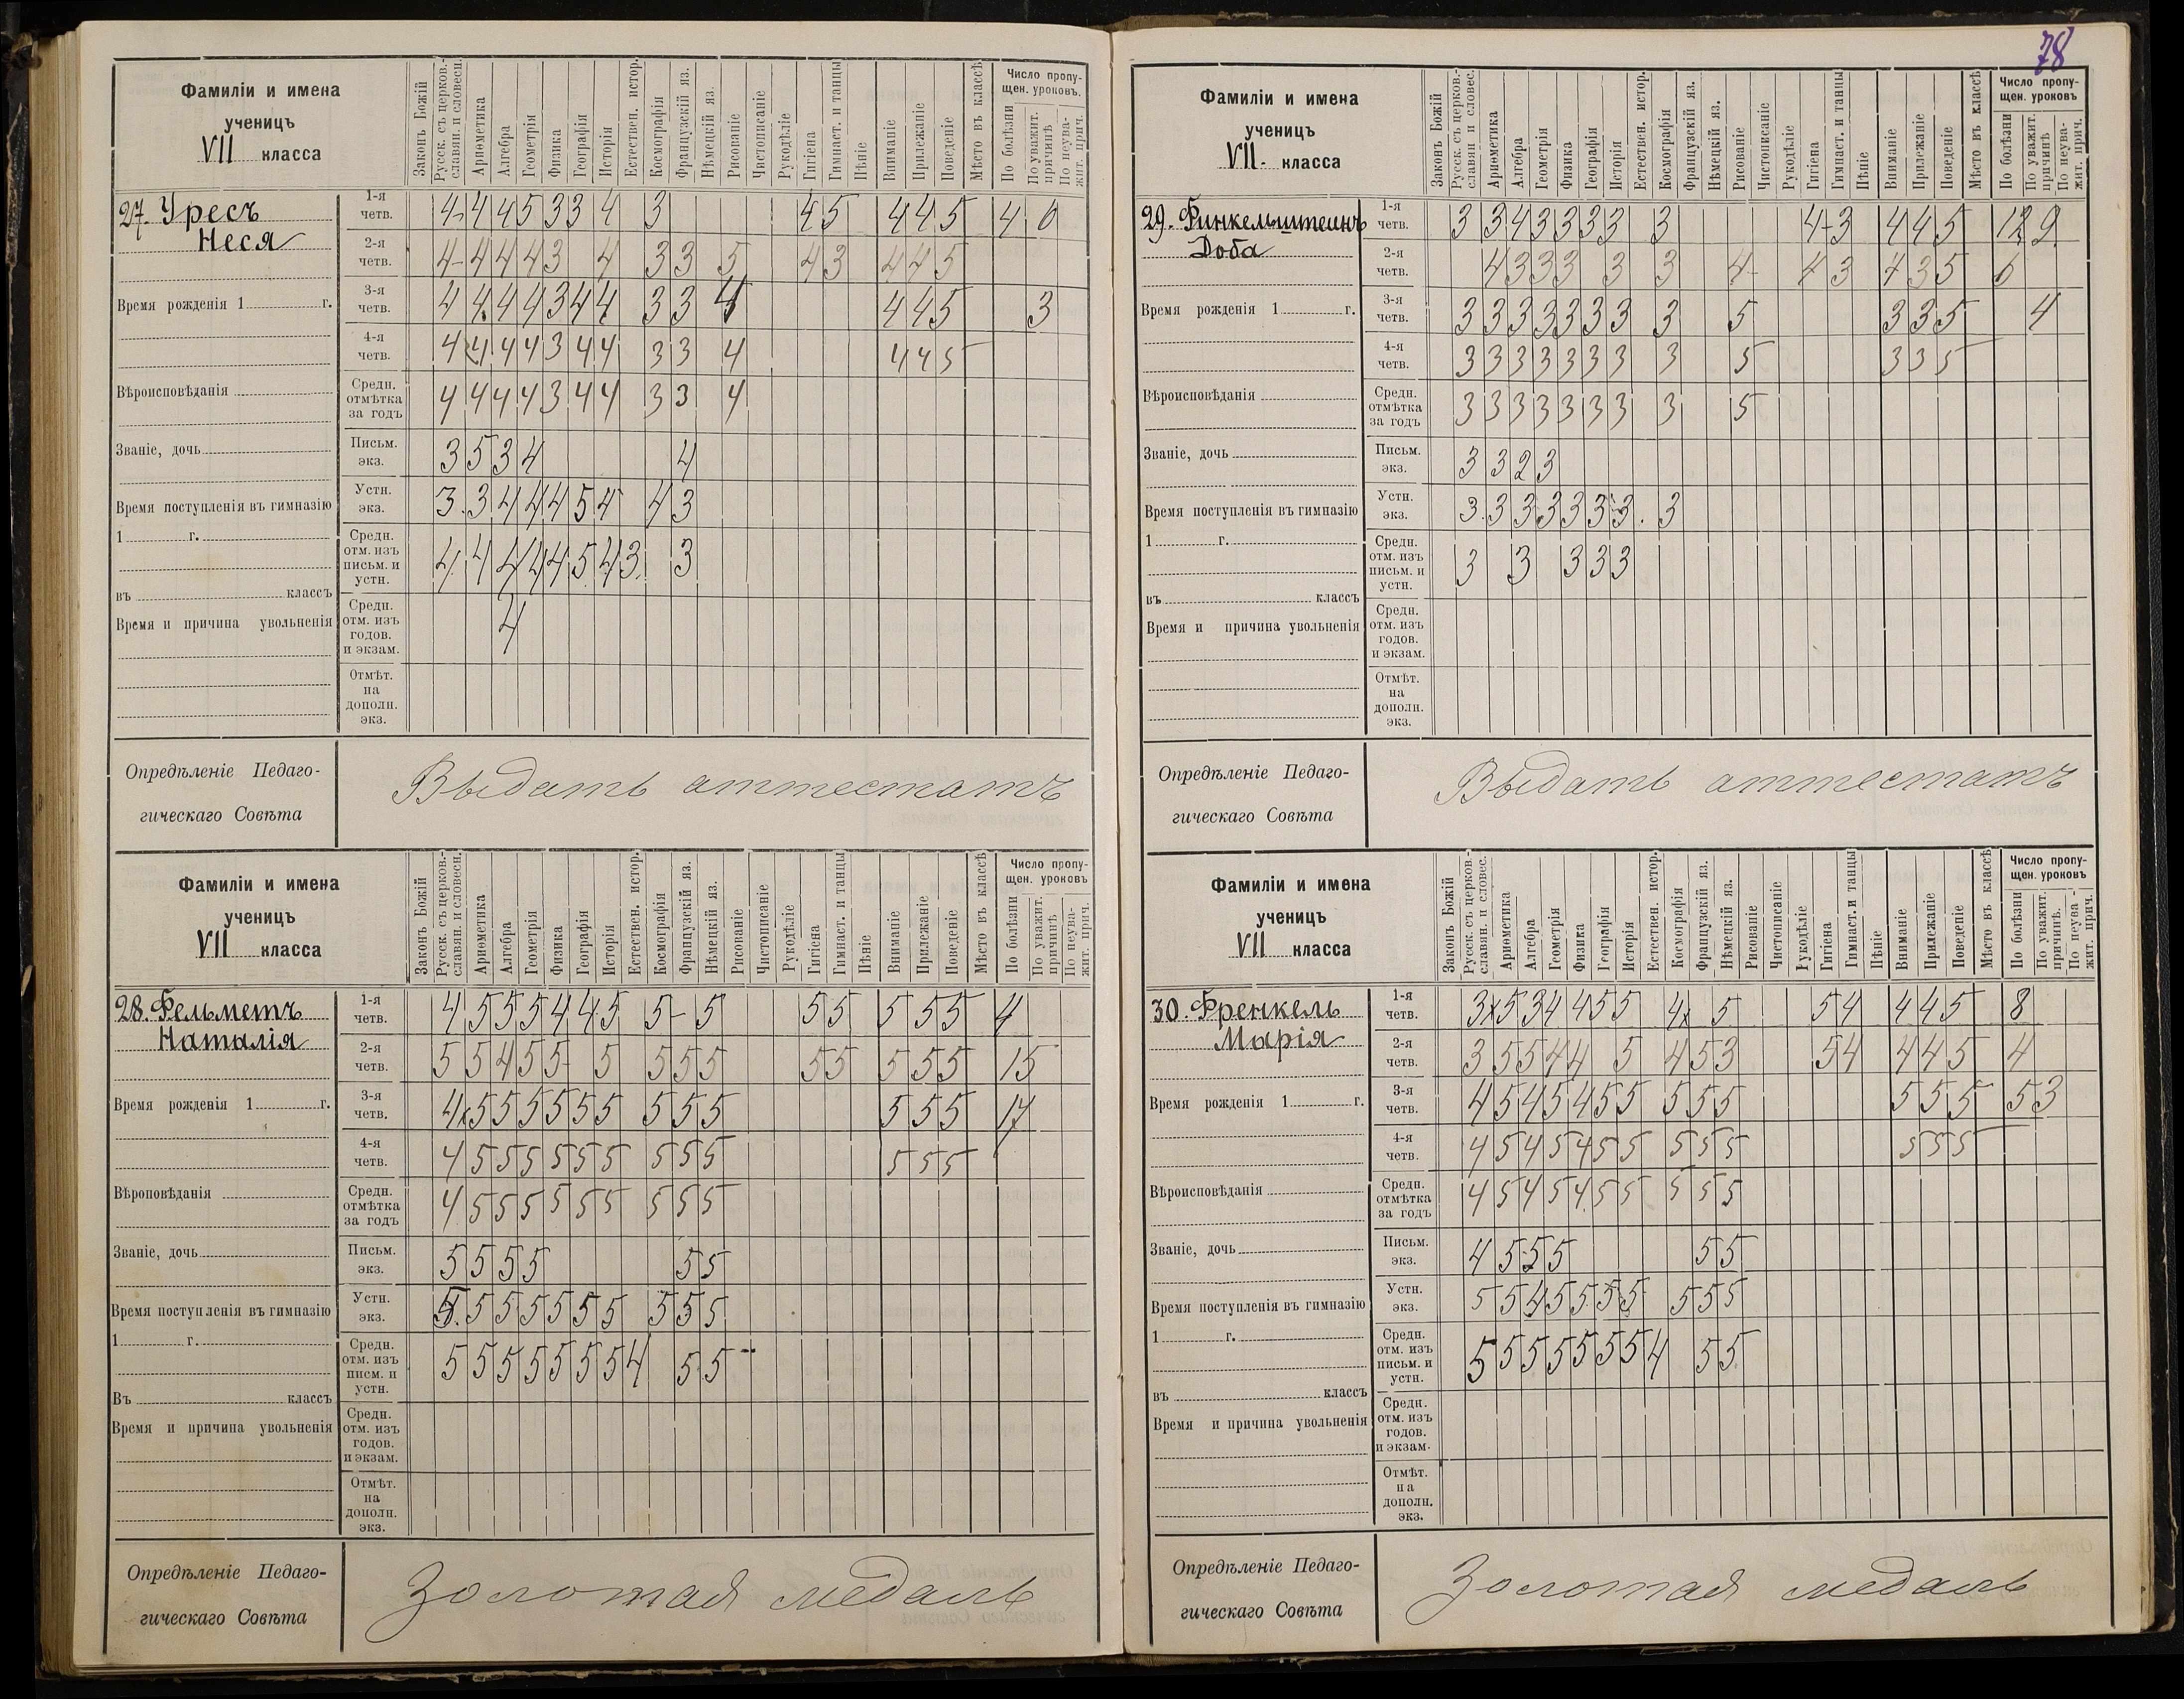 78
Фамиліи и имена
ученицъ
VII класса
Законъ Божій
Русск. съ церков.-
славян. и словесн.
Ариѳметика
Алгебра
Геометрія
Физика
Географія
Исторія
Естествен. истор.
Космографія
Французскій яз.
Нѣмецкій яз.
Рисованіе
Чистописаніе
Рукодѣліе
Гигіена
Гимнаст. и танцы
Пѣніе
Вниманіе
Прилежаніе
Поведеніе
Мѣсто въ классѣ
Число пропу-
щен. уроковъ.
По болѣзни
По уважит.
причинѣ
По неува-
жит. прич.
27. Уресъ
Неся
1-я четв. 4 4 4 5 3 3 4 3 4 5 4 4 5 4 6
2-я четв. 4 4 4 4 3 4 3 3 5 4 3 4 4 5
Время рожденія 1 г.
3-я четв. 4 4 4 4 3 4 4 3 3 4 4 4 5 3
4-я четв. 4 4 4 4 3 4 4 3 3 4 4 4 5
Вѣроисповѣданія
Средн. отмѣтка за годъ 4 4 4 4 3 4 4 3 3 4
Званіе, дочь
Письм. экз. 3 5 3 4 4
Время поступленія въ гимназію
Устн. экз. 3 3 4 4 4 5 4 4 3
1 г.
Средн. отм. изъ письм. и устн. 4 4 4 4 4 5 4 3 3
въ классъ
Время и причина увольненія
Средн. отм. изъ годов. и экзам. 4
Отмѣт. на дополн. экз.
Опредѣленіе Педаго-
гическаго Совѣта
Выдать аттестатъ
Фамиліи и имена
ученицъ
VII класса
Законъ Божій
Русск. съ церков.-
славян. и словесн.
Ариѳметика
Алгебра
Геометрія
Физика
Географія
Исторія
Естествен. истор.
Космографія
Французскій яз.
Нѣмецкій яз.
Рисованіе
Чистописаніе
Рукодѣліе
Гигіена
Гимнаст. и танцы
Пѣніе
Вниманіе
Прилежаніе
Поведеніе
Мѣсто въ классѣ
Число пропу-
щен. уроковъ
По болѣзни
По уважит.
причинѣ
По неува-
жит. прич.
28. Фельметъ
Наталія
1-я четв. 4 5 5 5 4 4 5 5 5 5 5 5 5 5 4
2-я четв. 5 5 4 5 5 5 5 5 5 5 5 5 5 5 15
Время рожденія 1 г.
3-я четв. 4 5 5 5 5 5 5 5 5 5 5 5 5 17
4-я четв. 4 5 5 5 5 5 5 5 5 5 5 5 5
Вѣроповѣданія
Средн. отмѣтка за годъ 4 5 5 5 5 5 5 5 5 5
Званіе, дочь
Письм. экз. 5 5 5 5 5 5
Время поступленія въ гимназію
Устн. экз. 5. 5 5 5 5 5 5 5 5 5
1 г.
Средн. отм. изъ писм. и устн. 5 5 5 5 5 5 5 4 5 5
Въ классъ
Время и причина увольненія
Средн. отм. изъ годов. и экзам.
Отмѣт. на дополн. экз.
Опредѣленіе Педаго-
гическаго Совѣта
Золотая медаль
Фамиліи и имена
ученицъ
VII. класса
Законъ Божій
Русск. съ церков.-
славян и словес.
Ариѳметика
Алгебра
Геометрія
Физика
Географія
Исторія
Естествен. истор.
Космографія
Французскій яз.
Нѣмецкій яз.
Рисованіе
Чистописаніе
Рукодѣліе
Гигіена
Гимнаст. и танцы
Пѣніе
Вниманіе
Прилежаніе
Поведеніе
Мѣсто въ классѣ
Число пропу-
щен. уроковъ
По болѣзни
По уважит.
причинѣ
По неува-
жит. прич.
29. Финкельштейнъ
Доба
1-я четв. 3 3 4 3 3 3 3 3 4 3 4 4 5 12 9
2-я четв. 4 3 3 3 3 3 4 4 3 4 3 5 6
Время рожденія 1 г.
3-я четв. 3 3 3 3 3 3 3 3 5 3 3 5 4
4-я четв. 3 3 3 3 3 3 3 3 5 3 3 5
Вѣроисповѣданія
Средн. отмѣтка за годъ 3 3 3 3 3 3 3 3 5
Званіе, дочь
Письм. экз. 3 3 2 3
Время поступленія въ гимназію
Устн. экз. 3. 3 3 3 3 3 3. 3
1 г.
Средн. отм. изъ письм. и устн. 3 3 3 3 3
въ классъ
Время и причина увольненія
Средн. отм. изъ годов. и экзам.
Отмѣт. на дополн. экз.
Опредѣленіе Педаго-
гическаго Совѣта
Выдать аттестатъ
Фамиліи и имена
ученицъ
VII класса
Законъ Божій
Русск. съ церков-
славян. и словес.
Ариѳметика
Алгебра
Геометрія
Физика
Географія
Исторія
Естествен. истор.
Космографія
Французскій яз.
Нѣмецкій яз.
Рисованіе
Чистописаніе
Рукодѣліе
Гигіена
Гимнаст. и танцы
Пѣніе
Вниманіе
Прилежаніе
Поведеніе
Мѣсто въ классѣ
Число пропу-
щен. уроковъ
По болѣзни
По уважит.
причинѣ.
По неува-
жит. прич.
30. Френкель
Марія
1-я четв. 3 5 3 4 4 5 5 4 5 5 4 4 4 5 8
2-я четв. 3 5 5 4 4 5 4 5 3 5 4 4 4 5 4
Время рожденія 1 г.
3-я четв. 4 5 4 5 4 5 5 5 5 5 5 5 5 5 3
4-я четв. 4 5 4 5 4 5 5 5 5 5 5 5 5
Вѣроисповѣданія
Средн. отмѣтка за годъ 4 5 4 5 4 5 5 5 5 5
Званіе, дочь
Письм. экз. 4 5 5 5 5 5
Время поступленія въ гимназію
Устн. экз. 5 5 4 5 5 5 5 5 5 5
1 г.
Средн. отм. изъ письм. и устн. 5 5 5 5 5 5 5 4 5 5
въ классъ
Время и причина увольненія
Средн. отм. изъ годов. и экзам.
Отмѣт. на дополн. экз.
Опредѣленіе Педаго-
гическаго Совѣта
Золотая медаль